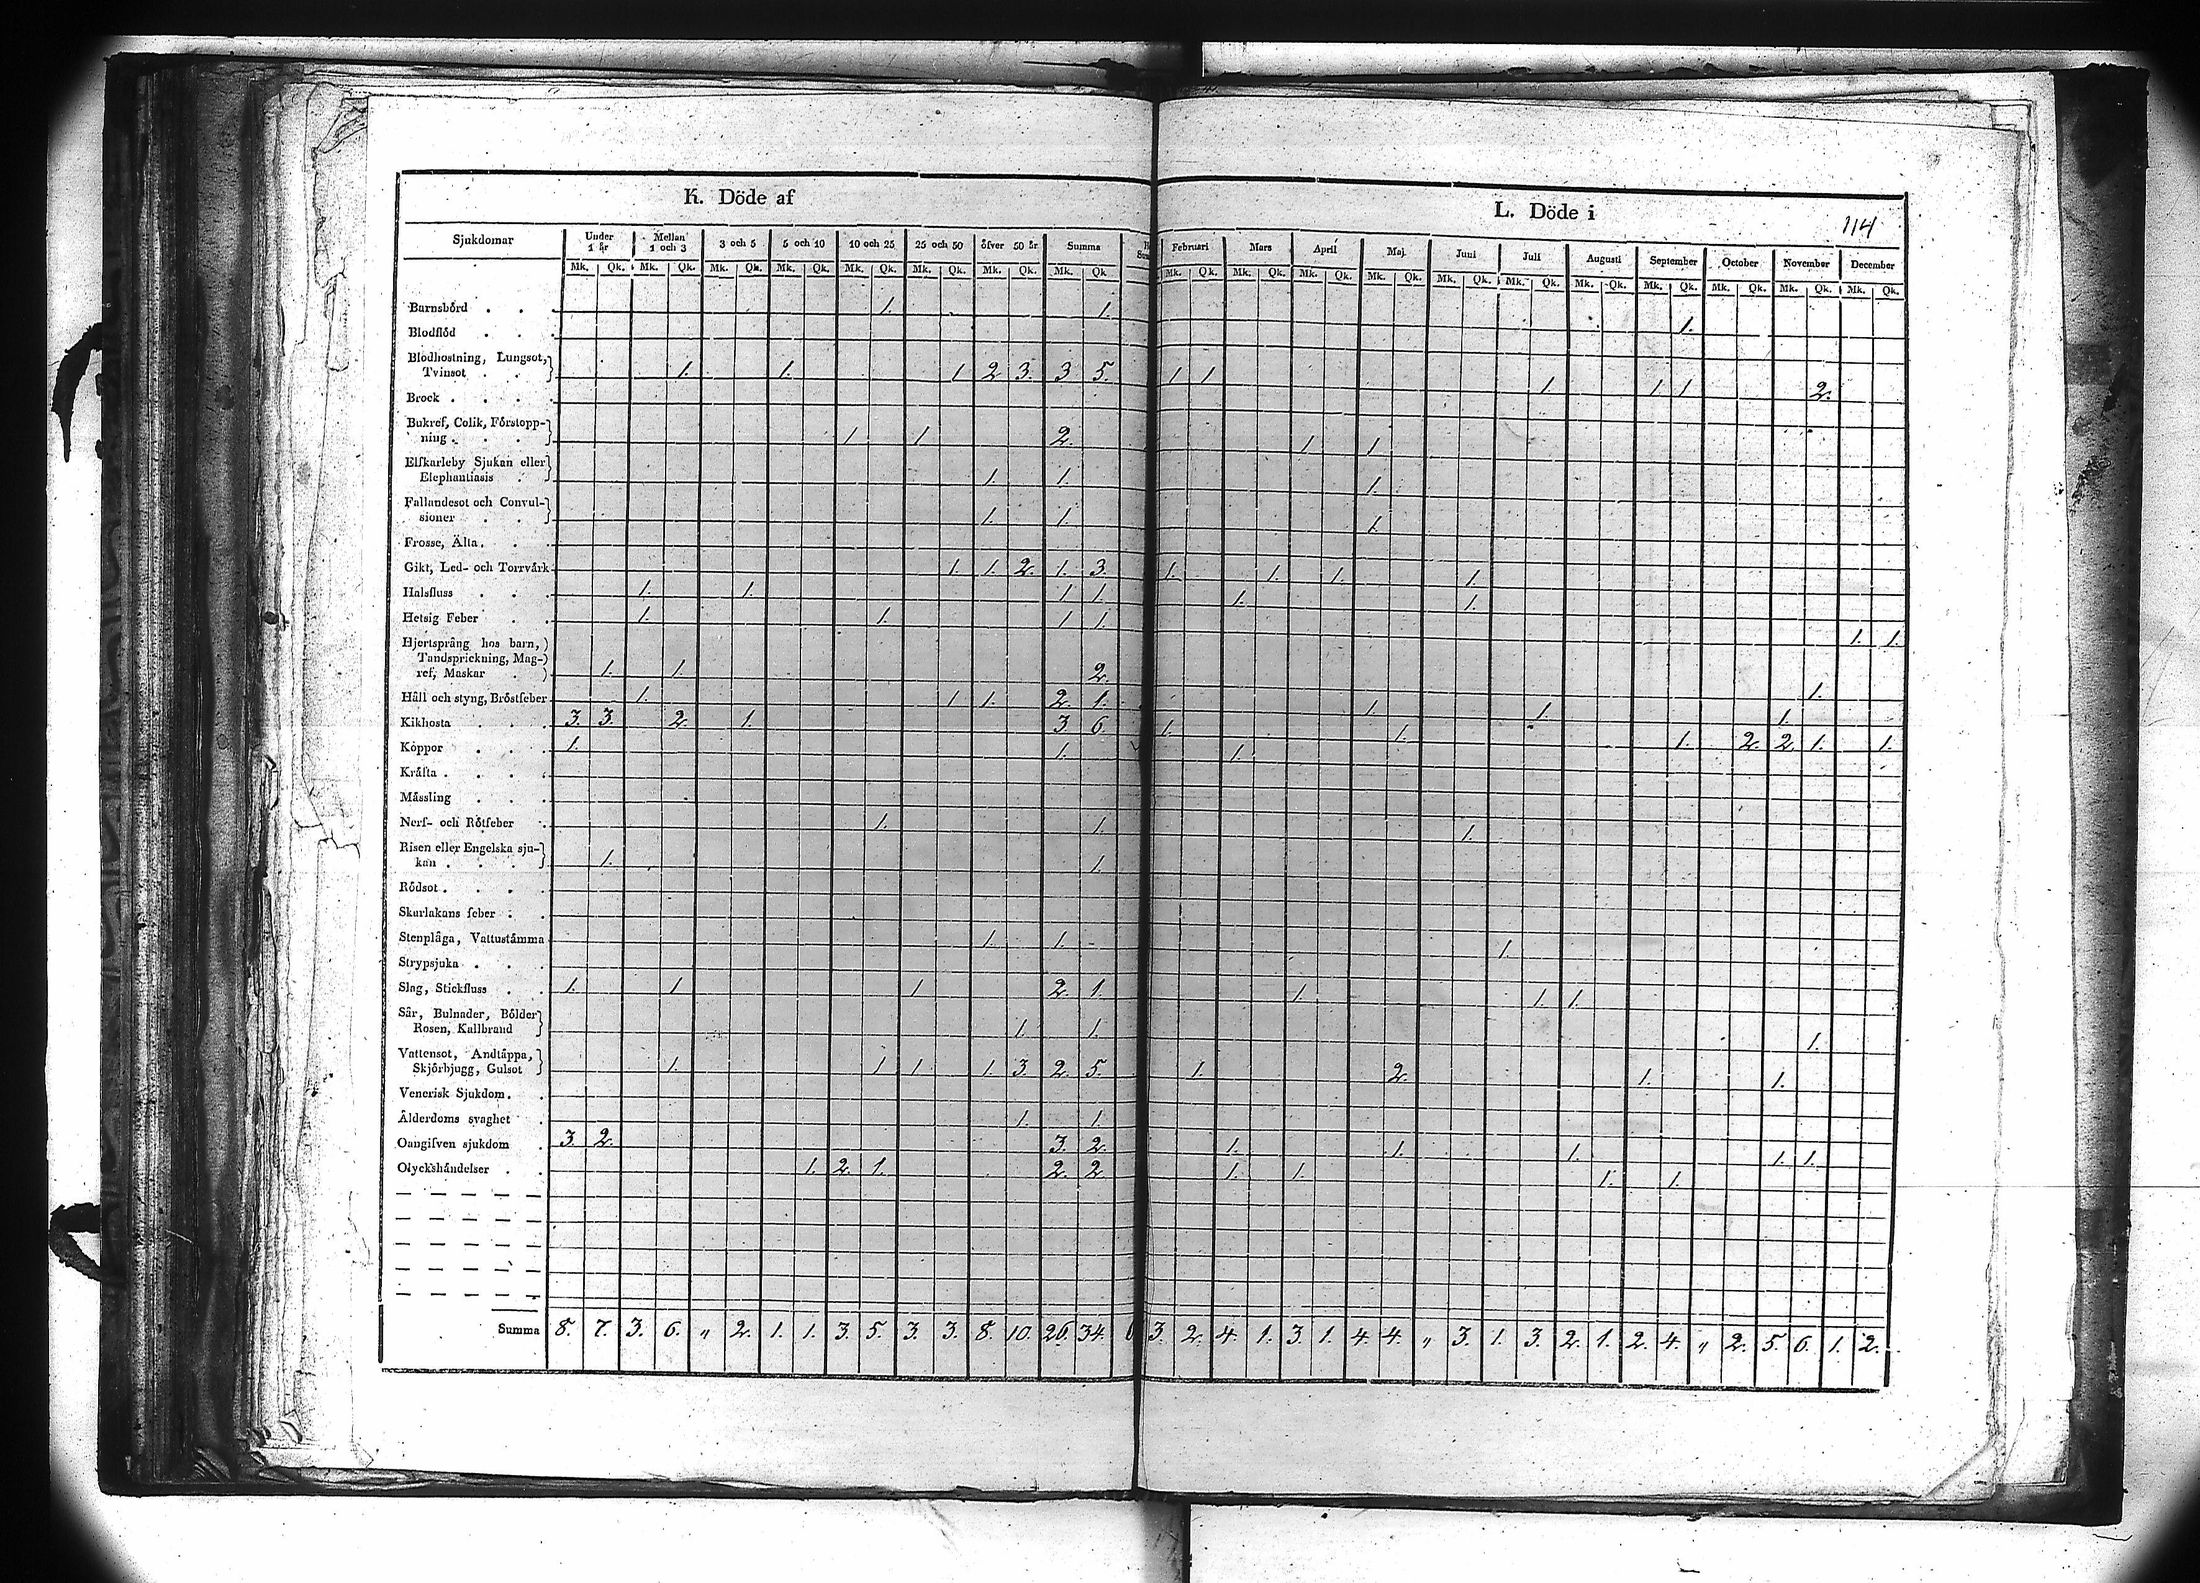 K. Döde af
L. Döde i
114
Sjukdomar Under 1 år Mellan 1 och 3 3 och 5 5 och 10 10 och 25 25 och 50 öfver 50 år Summa Februari Mars April Maj Juni Juli Augusti September October November December
Mk. Qk. Mk. Qk. Mk. Qk. Mk. Qk. Mk. Qk. Mk. Qk. Mk. Qk. Mk. Qk. Mk. Qk. Mk. Qk. Mk. Qk. Mk. Qk. Mk. Qk. Mk. Qk. Mk. Qk. Mk. Qk. Mk. Qk. Mk. Qk. Mk. Qk.
Barnsbörd . . . 1. 1. 1.
Blodflöd . . .
Blodhostning, Lungsot,
Tvinsot . . 1. 1. 1 2 3. 3 5. 1 1 1. 1 1 2.
Brock . . . .
Bukref, Colik, Förstopp-
ning . . . 1 1 2. 1 1
Elfkarleby Sjukan eller
Elephantiasis . 1. 1. 1.
Fallandesot och Convul-
sioner . . 1. 1. 1.
Frosse, Älta . . .
Gikt, Led- och Torrvärk 1. 1. 2. 1. 3. 1. 1. 1. 1.
Halsfluss . . . 1. 1. 1 1. 1. 1.
Hetsig Feber . . 1. 1. 1 1. 1. 1.
Hjertsprång hos barn,
Tandsprickning, Mag-
ref, Maskar . 1. 1. 2. 1.
Håll och styng, Bröstfeber 1. 1 1. 2. 1. 1. 1. 1.
Kikhosta . . . 3. 3. 2. 1. 3 6. 1. 1. 1. 2. 2. 1. 1.
Koppor . . . 1. 1. 1.
Kräfta . . . .
Mässling . . .
Nerf- och Rötfeber . 1. 1. 1.
Risen eller Engelska sju-
kan . . . 1. 1.
Rödsot . . . .
Skarlakans feber . .
Stenplåga, Vattustämma 1. 1. 1.
Strypsjuka . . .
Slag, Stickfluss . . 1. 1 1 2. 1. 1. 1. 1.
Sår, Bulnader, Bölder
Rosen, Kallbrand 1. 1. 1.
Vattensot, Andtäppa,
Skjörbjugg, Gulsot 1. 1 1 1. 3. 2. 5. 1. 2. 1. 1.
Venerisk Sjukdom . .
Ålderdoms svaghet . 1. 1
Oangifven sjukdom . 3. 2. 3. 2. 1. 1. 1. 1. 1.
Olyckshändelser . . 1. 2. 1. 2. 2 1. 1. 1. 1.
Summa 8. 7. 3. 6. „ 2. 1. 1. 3. 5. 3. 3. 8. 10. 26. 34. 3. 2. 4. 1. 3. 1. 4. 4. „ 3. 1. 3. 2. 1. 2. 4. „ 2. 5. 6. 1. 2.